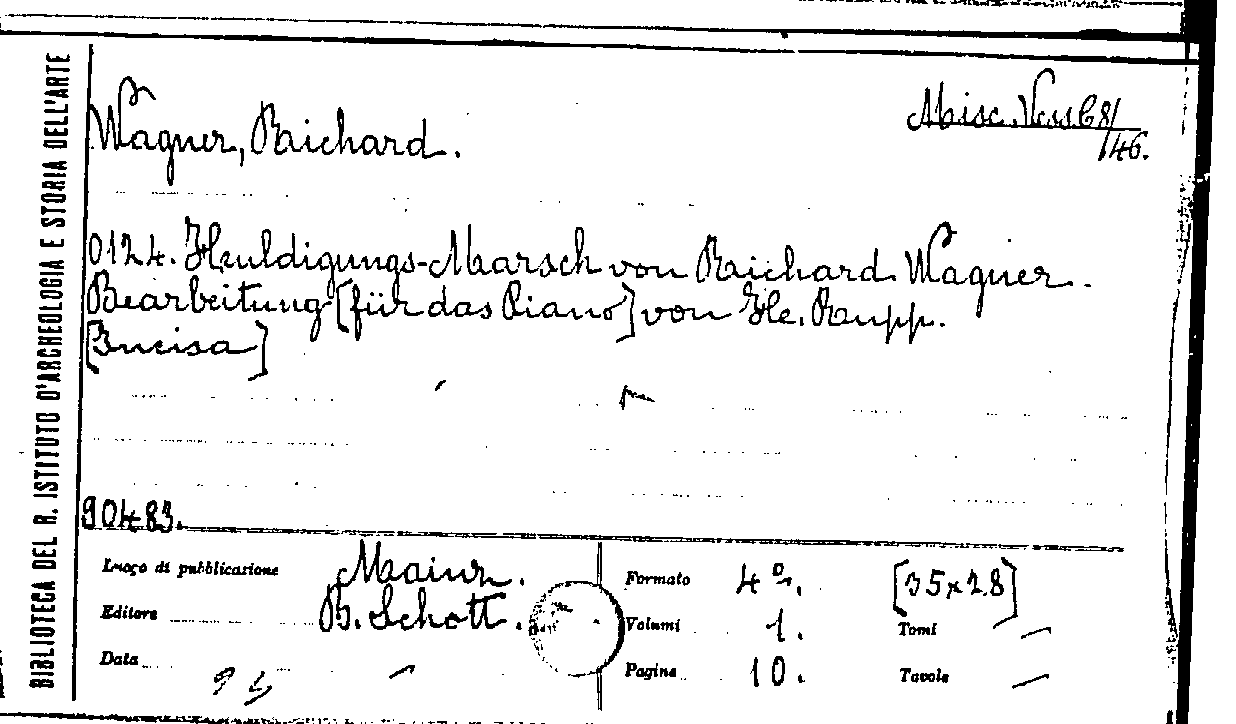 BIBLIOTECA DEL R. ISTITUTO D'ARCHEOLOGIA E STORIA DELL'ARTE
Wagner, Raichard.
Misc. Vess 68/
146.
0124. Heuldigungs-Marsch von Raichard Wagner.
Bearbeitung [für das Piano] von He. Rupp.
[Incisa]
90483.
Luogo di pubblicazione Mainz.
Editore B. Schott.
Data
95
Formato 4º. [35x28]
Volumi 1. Tomi —
Pagine 10. Tavole —